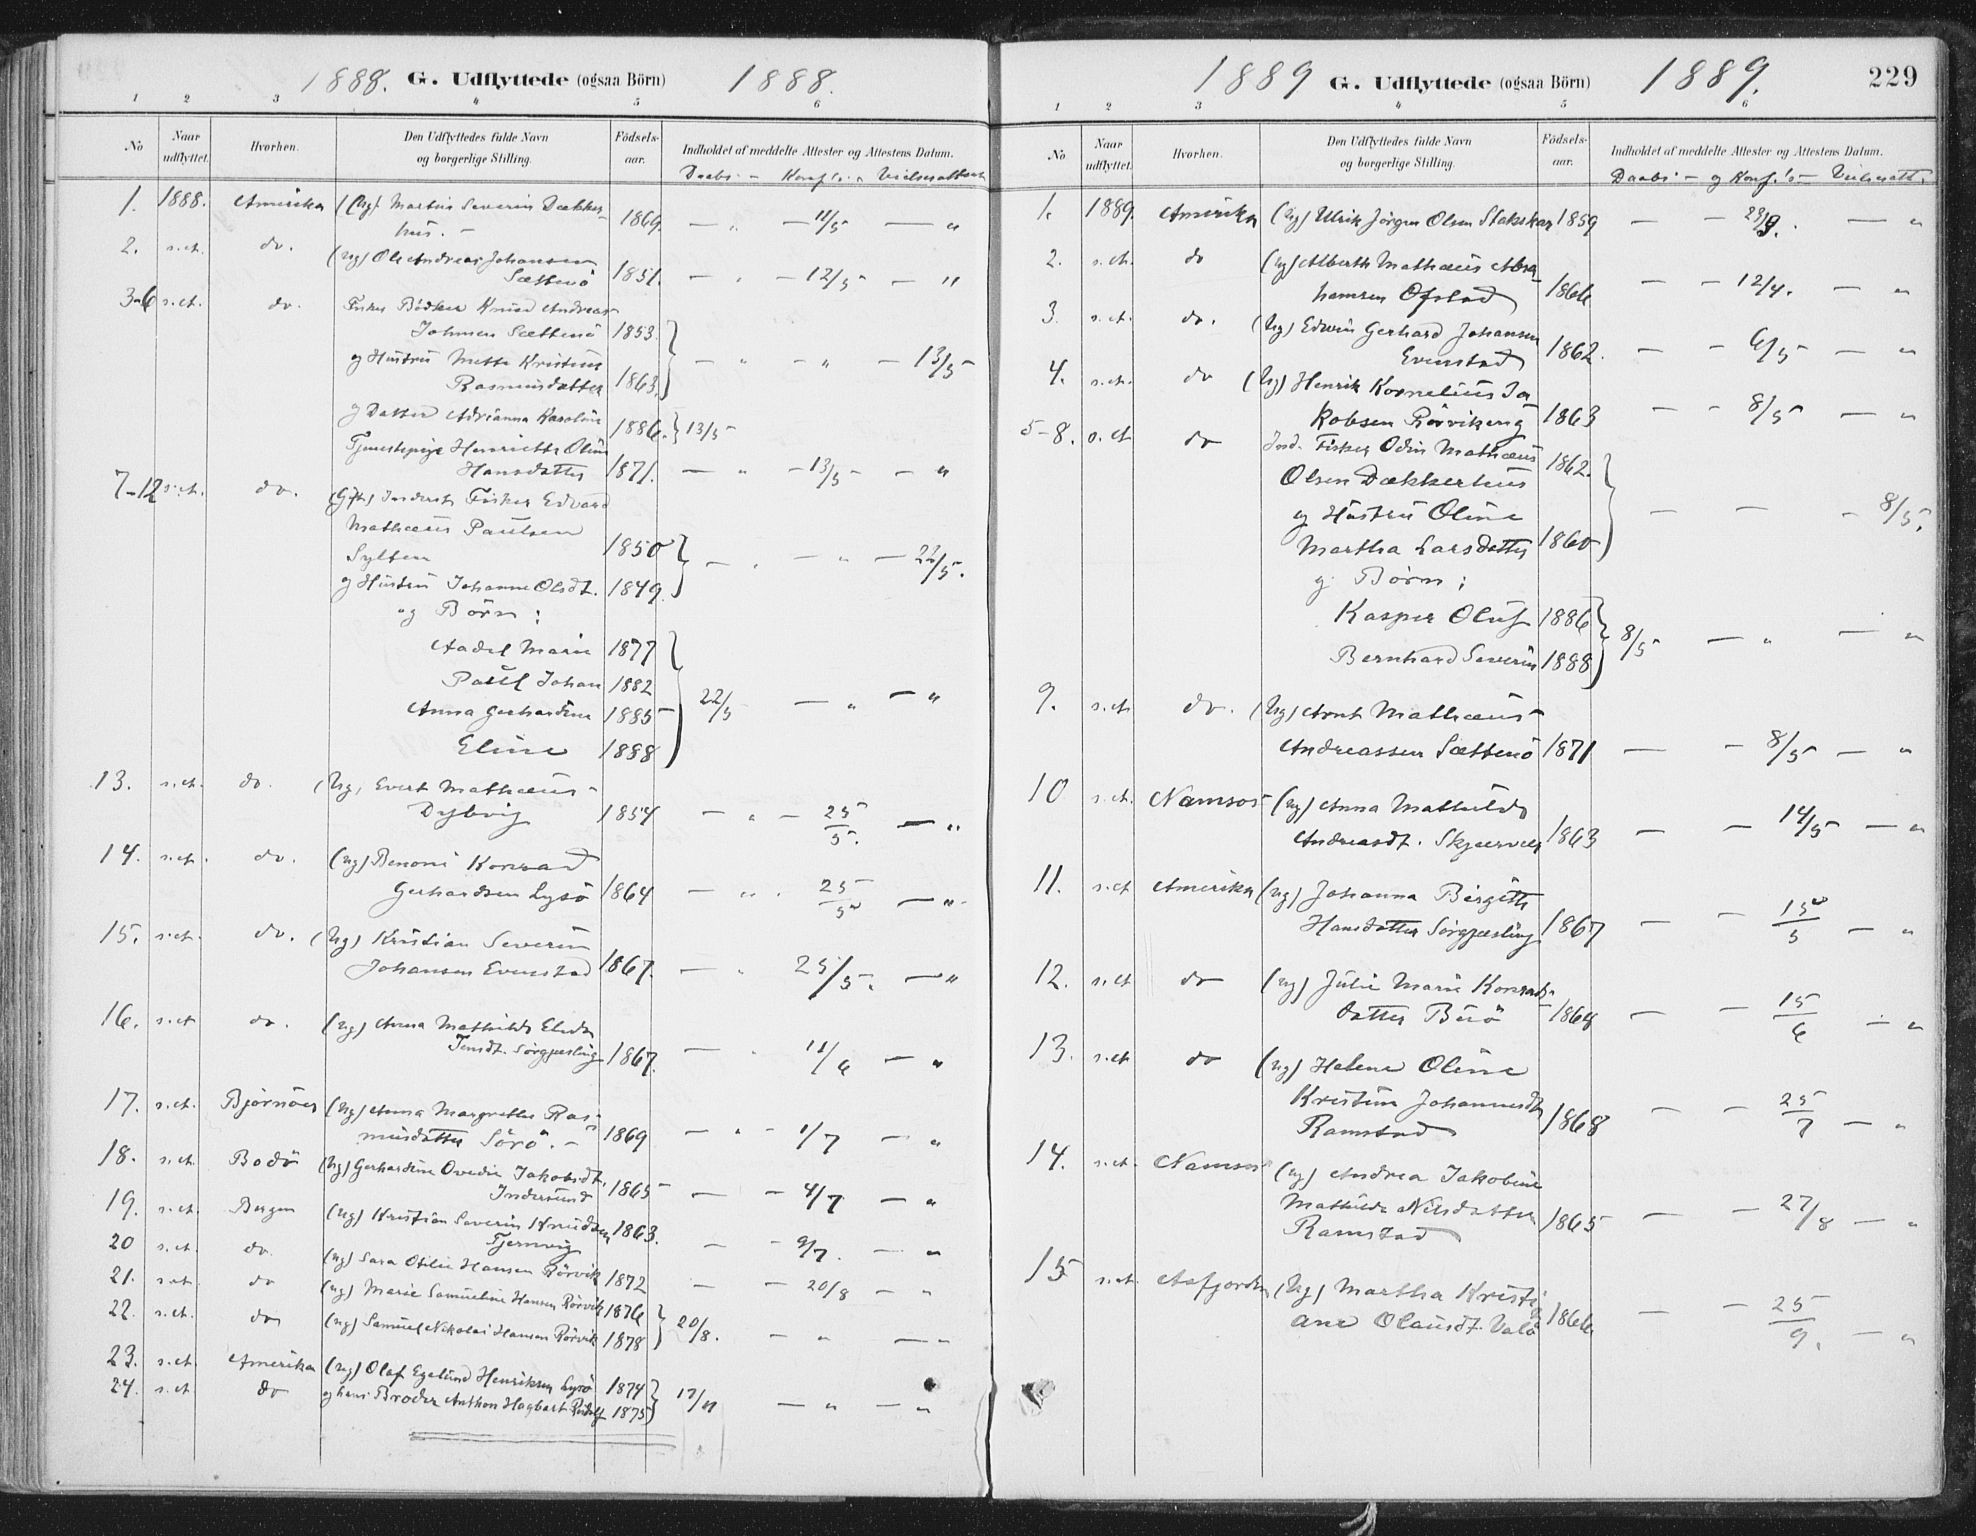 1888. G. Udflyttede (ogsaa Börn) 1888.
1 2 3 4 5 6
No Naar udflyttet. Hvorhen. Den Udflyttedes fulde Navn og borgerlige Stilling. Födsels-aar. Indholdet af meddelte Attester og Attestens Datum.
Daabs - Konf's -
1. 1888. Amerika (Ug) Martin Severin Dækker-
hus. - 1869. — " — 11/5 — "
2. s.et. do. (ug) Ole Andreas Johansen
Sættenö 1851. — " — 12/5 — "
3-6 s.et. do. Fisker Bödker Knud Andreas
Johnsen Sættenö 1853.
og Hustru Mette Kristine — " — " — 13/5
Rasmusdatter 1863.
og Datter Adrianna Karoline 1886. 13/5
Tjenestepige Henriette Oline
Hansdatter 1871. — " — 13/5 — "
7-12 s.et. do. (Gift) Inderst Fisker Edvard
Mathæus Paulsen
Sylten 1850 — " — " — 22/5.
og Hustru Johanne Olsdt. 1849.
og Börn :
Aadel Marie 1877
Paul Johan 1882
Anna Gerhardine 1885 22/5 — " — "
Eline 1888
13. s.et. do. (Ug, Evert Mathæus
Dybvig 1854 — " — 25/5. — "
14. s.et. do. (ug) Benoni Konrad
Gerhardsen Lysö 1864 — " . 25/5 — "
15. s.et. do. (Ug) Kristian Severin
Johansen Evenstad 1867. — " 25/5. — "
16. s.et do. (ug) Anna Mathilde Elida
Jensdt. Sörgjæsling 1867. — " 11/6 — "
17. s.et. Björnöer (Ug) Anna Margrethe Ras-
musdatter Sörö. - 1869 — " — 1/7 — "
18. s.et. Bodö (Ug) Gerhardine Ovedie Jakobsdt.
Indersund 1865 — — 4/7 — "
19. s.et. Bergen (ug) Kristian Severin Knudsen
Tjernvig 1863. — — 9/7. — "
20 s.et. do. (ug) Sara Otilie Hansen Rörvik 1872 — — 20/8 — "
21. s.et. do (ug) Marie Samueline Hansen Rörvik 1876
22. s.et. do (ug) Samuel Nikolai Hansen Rörvik 1878 20/8. — " — "
23. s.et. Amerika (ug) Olaf Egelund Henriksen Lysö 1874
24. s.et. do og hans Broder Anthon Hagbart Rudolf 1875 17/11 — " — "
1889 G. Udflyttede (ogsaa Börn) 1889. 229
1 2 3 4 5 6
No Naar udflyttet. Hvorhen. Den Udflyttedes fulde Navn og borgerlige Stilling. Födsels-aar. Indholdet af meddelte Attester og Attestens Datum.
Daabs - og Konf.'s -
1. 1889. Amerika (Ug) Ulrik Jörgen Olsen 1859 — — 23/3. — "
2. s.et. do (ug) Alberth Mathæus Abra-
hamsen Ofstad 1866 — — 12/4. — "
3. s.et. do. (Ug) Edvin Gerhard Johansen
Evenstad 1862. — — 6/5 — "
4. s.et. do (Ug) Henrik Kornelius Ja
kobsen Rörvikeng 1863 — — 8/5 — "
5-8. s.et do Ind. Fisker Odin Mathæus 1862.
Olsen Dækkerhus
og Hustru Oline — — — 8/5.
Martha Larsdatter 1860
og Börn :
Kasper Oluf 1886
Bernhard Severin 1888 8/5 — " — "
9. s.et. do. (Ug) Arnt Mathæus
Andreassen Sættenö 1871 — — 8/5 — "
10 s.et. Namsos (ug) Anna Mathilde
Andreasdt. 1863 — — 14/5 — "
11. s.et Amerika (ug) Johanna Birgitte
Hansdatter Sörgjæsling 1867 — — 15/5 — "
12. s.et do (ug) Julie Marie Konrads-
datter 1864 — — 15/6 — "
13. s.et do (ug) Helene Oline
Kristine Johannesdt
Ramstad 1868 — — 25/7 — "
14. s.et. Namsos (ug) Andrea Jakobine
Mathilde Nilsdatter 1865 — — 27/8 — "
Ramstad
15 s.et. Aafjorden (Ug) Martha Kristi
ane Olausdt. Valö 1866 — — 25/9. — "